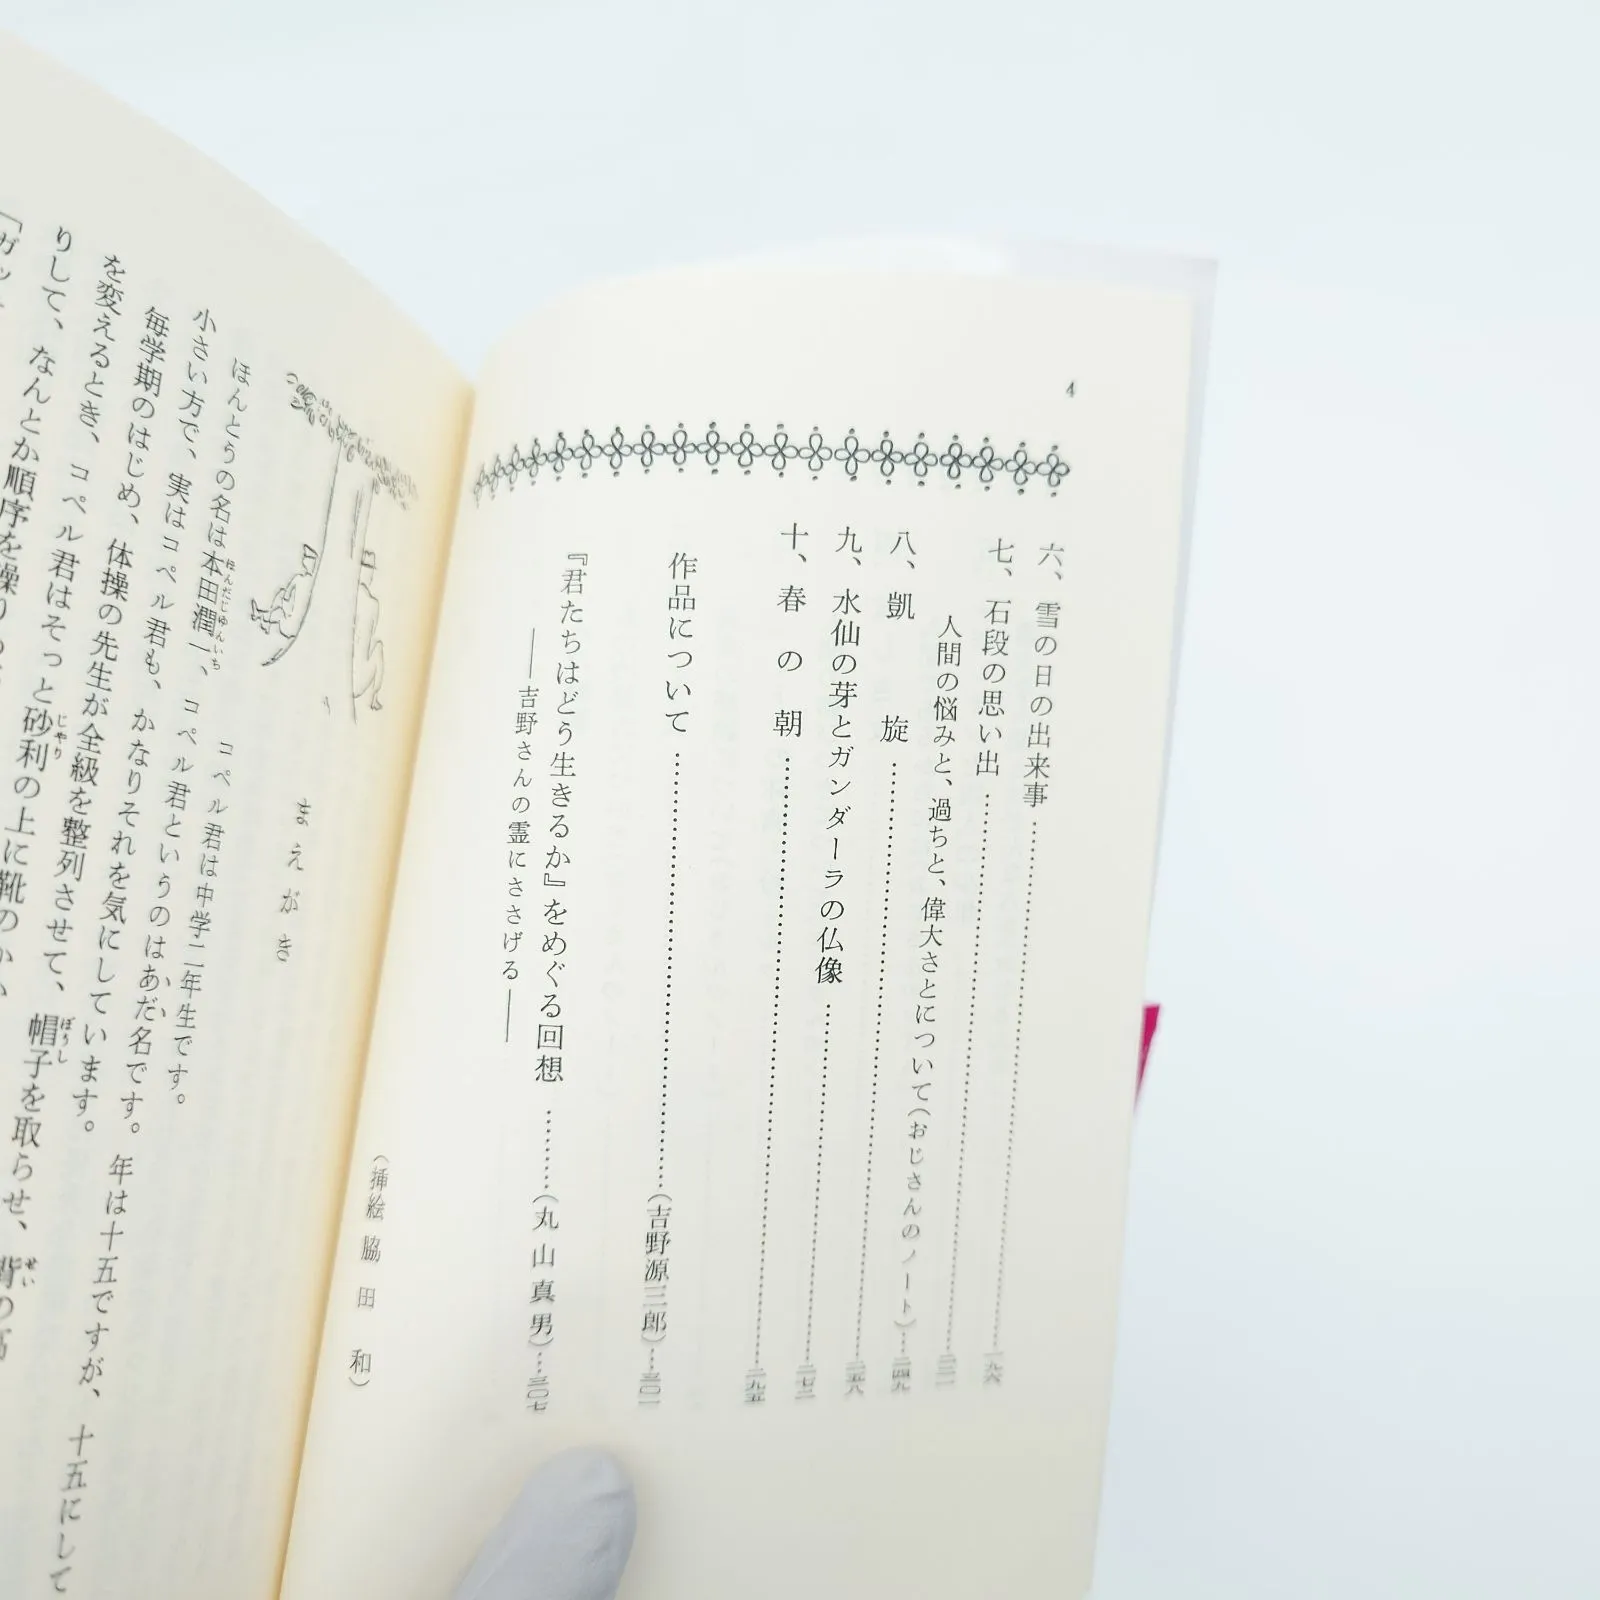 4
六、雪の日の出来事……一九六
七、石段の思い出……二二一
人間の悩みと、過ちと、偉大さとについて(おじさんのノート)……二四九
八、凱旋……二五八
九、水仙の芽とガンダーラの仏像……二七二
十、春の朝……二九五
作品について……(吉野源三郎)……三〇一
『君たちはどう生きるか』をめぐる回想……(丸山真男)……三〇七
――吉野さんの霊にささげる――
(挿絵 脇田 和)
まえがき
コペル君は中学二年生です。
ほんとうの名は本田潤一、コペル君というのはあだ名です。年は十五ですが、十五にして
小さい方で、実はコペル君も、かなりそれを気にしています。
毎学期のはじめ、体操の先生が全級を整列させて、帽子を取らせ、背の高
を変えるとき、コペル君はそっと砂利の上に靴のか
りして、なんとか順序を
「ガッ